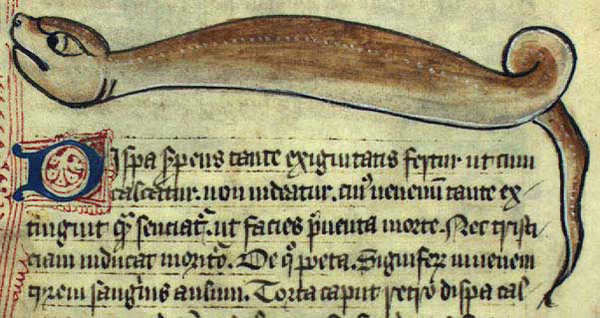 Dispa sp̱ens tante exiguitatis fertur ut cum
calcetur. non uideatur. cuiꝰ uenenū tante ex
tinguit qͣ̄ senciat᷑. ut facies p̄uenta morte. Nec tristi
ciam inducat morit᷑o. De qͦ poeta. Signifeꝝ iuuenem
tyrem sangⁱnis aulum. Torta caput retro dispa cal